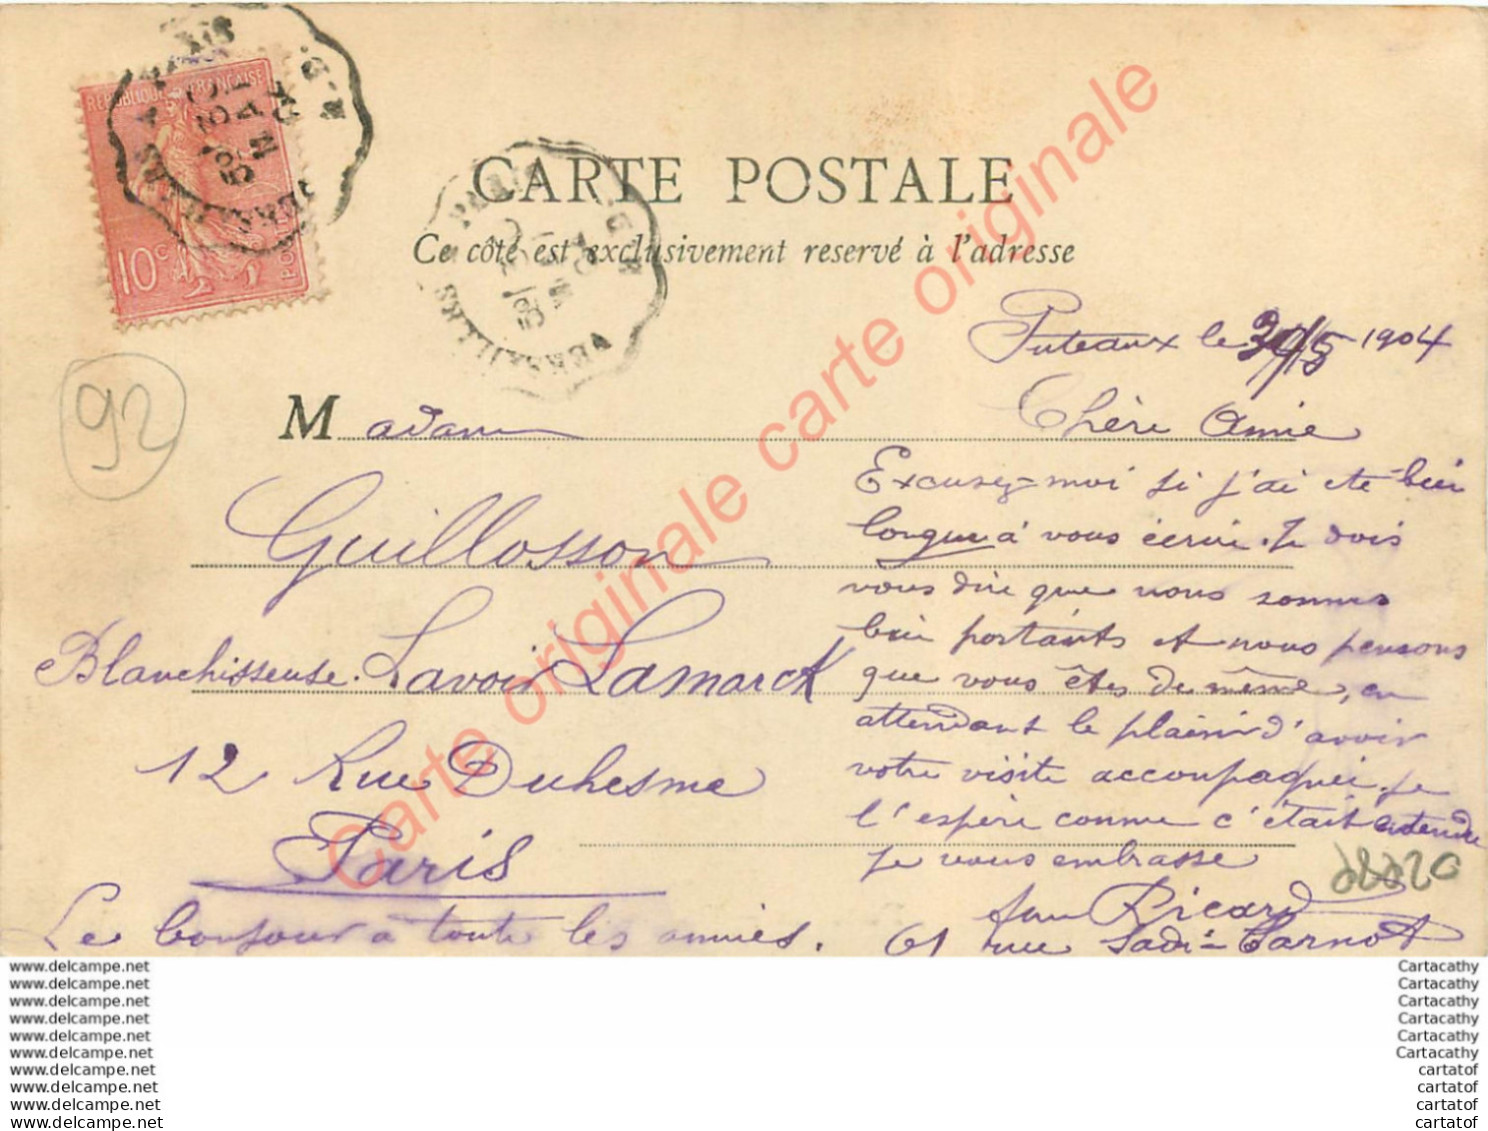 RÉPUBLIQUE FRANÇAISE
10c
POSTES
VERSAILLES A PARIS R.G.
CARTE POSTALE
Ce côté est exclusivement reservé à l'adresse
PARIS R.G.
VERSAILLES
92
Puteaux le 30/5 1904
Madame
Guillosson
Blanchisseuse. Lavoir Lamarck
12 Rue Duhesme
Paris
Chère Amie
Excusez-moi si j'ai ete bien
longue à vous écrire. Je dois
vous dire que nous sommes
bien portants et nous pensons
que vous êtes de même, en
attendant le plaisir d'avoir
votre visite accompagnée. Je
l'espère comme c'était entendu
Je vous embrasse
Ricard
61 rue Sadi-Carnot
Le bonjour à toute les amies.
Carte originale carte originale carte originale
www.delcampe.net
www.delcampe.net
www.delcampe.net
www.delcampe.net
www.delcampe.net
www.delcampe.net
www.delcampe.net
www.delcampe.net
www.delcampe.net
www.delcampe.net
Cartacathy
Cartacathy
Cartacathy
Cartacathy
Cartacathy
Cartacathy
cartatof
cartatof
cartatof
cartatof